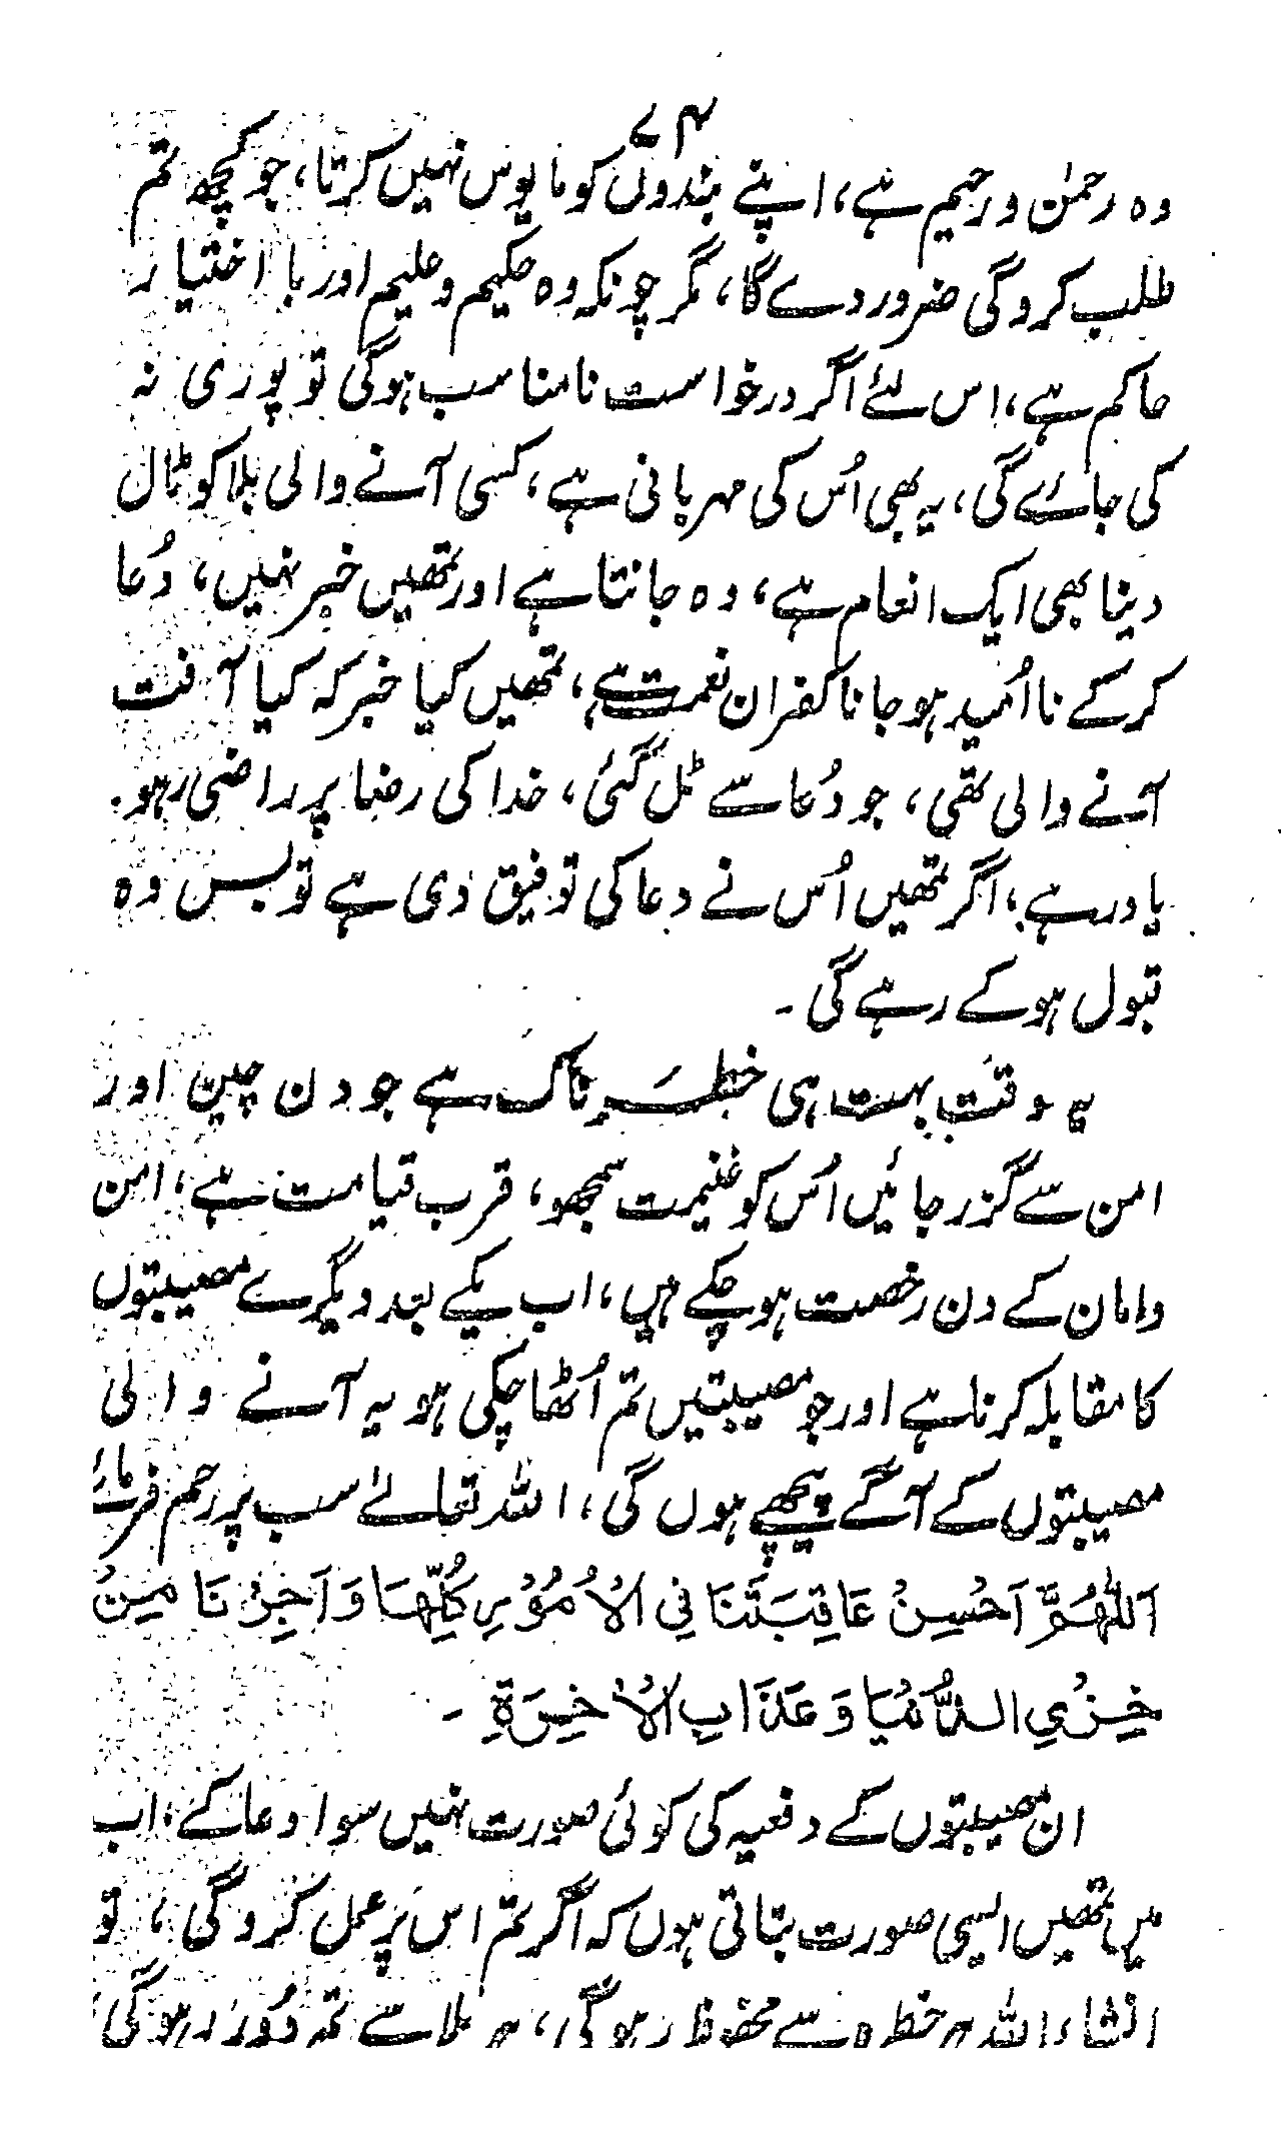 ۷۴
وہ رحمٰن ورحیم ہے، اپنے بندوں کو مایوس نہیں کرتا، جو کچھ تم
طلب کروگی ضرور دے گا، مگر چونکہ وہ حکیم و علیم اور با اختیار
حاکم ہے، اس لئے اگر درخواست نامناسب ہوگی تو پوری نہ
کی جائے گی، یہ بھی اُس کی مہربانی ہے، کسی آنے والی بلا کو ٹال
دینا بھی ایک انعام ہے، وہ جانتا ہے اور تمھیں خبر نہیں، دُعا
کرکے نا اُمید ہو جانا کفران نعمت ہے، تمھیں کیا خبر کہ کیا آفت
آنے والی تھی، جو دُعا سے ٹل گئی، خدا کی رضا پر راضی رہو۔
یاد رہے، اگر تمھیں اُس نے دعا کی توفیق دی ہے تو بس وہ
قبول ہوکے رہے گی۔
یہ وقت بہت ہی خطرناک ہے جو دن چین اور
امن سے گزر جائیں اُس کو غنیمت سمجھو، قرب قیامت ہے، امن
وامان کے دن رخصت ہوچکے ہیں، اب یکے بعد دیگرے مصیبتوں
کا مقابلہ کرنا ہے اور جو مصیبتیں تم اُٹھا چکی ہو یہ آنے والی
مصیبتوں کے آگے پیچھے ہوں گی، اللہ تعالےٰ سب پر رحم فرمائے
اَللّٰهُمَّ اَحْسِنْ عَاقِبَتَنَا فِی الْاُمُوْرِ كُلِّهَا وَاَجِرْنَا مِنْ
خِزْيِ الدُّنْيَا وَعَذَابِ الْاٰخِرَةِ۔
ان مصیبتوں کے دفعیہ کی کوئی صورت نہیں سوا دعا کے، اب
میں تمھیں ایسی صورت بتاتی ہوں کہ اگر تم اس پر عمل کروگی، تو
انشاء اللہ ہر خطرہ سے محفوظ رہوگی، ہر بلا سے تم دُور رہوگی،